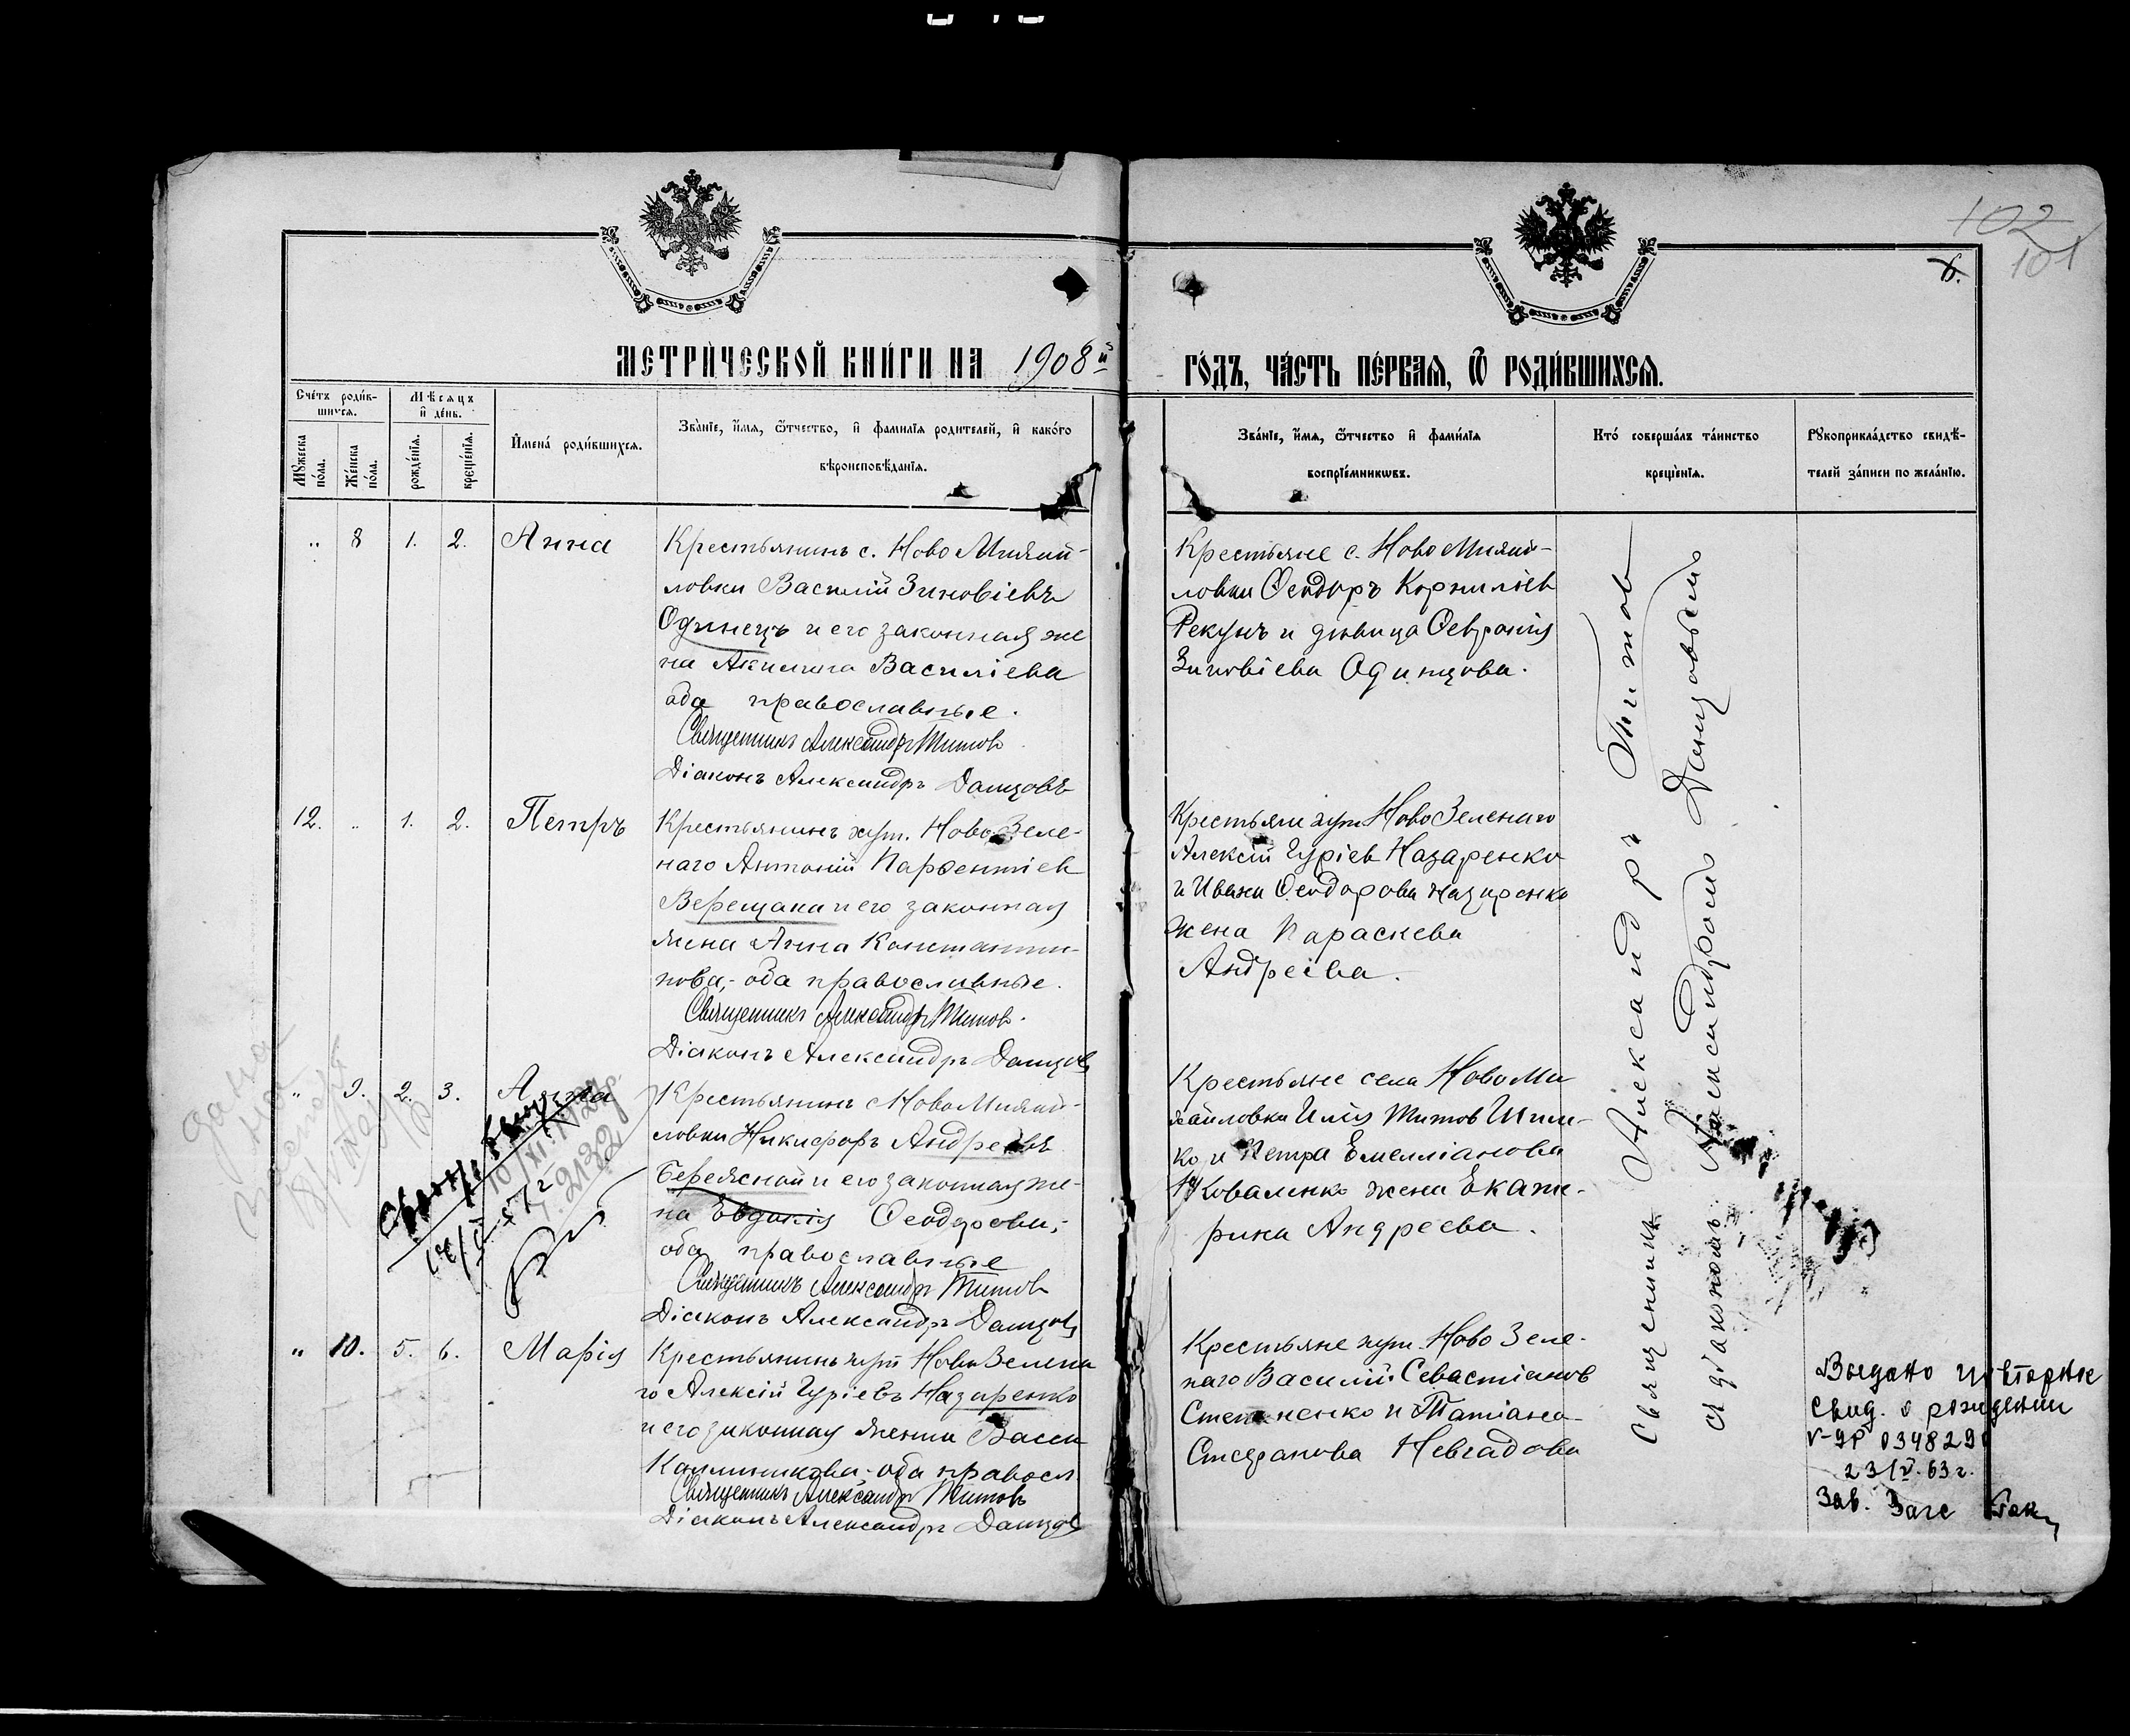 102
101
6.
МЕТРИ́ЧЕСКОЙ КНИ́ГИ НА 1908й
ГО́ДЪ, ЧА́СТЬ ПЕ́РВАЯ, Ѿ РОДИ́ВШИХСЯ.
Сче́тъ роди́в-
шихся.
Мѣ́сяцъ
и҆ де́нь.
Мꙋ́жеска
по́ла.
Же́нска
по́ла.
рожде́нїя.
креще́нїя.
И҆мена̀ роди́вшихся.
Зва́нїе, и҆́мя, ѻ҆́тчество, и҆ фами́лїя роди́телей, и҆ како́го
вѣроисповѣ́данїя.
Зва́нїе, и҆́мя, ѻ҆́тчество и҆ фами́лїя
воспрїе́мникѡвъ.
Кто̀ соверша́лъ та́инство
креще́нїя.
Рꙋкоприкла́дство свидѣ́-
телей за́писи по жела́нїю.
„ 8 1. 2. Анна
Крестьянинъ с. Ново Михай-
ловки Василій Зиновіевъ
Одинецъ и его законная же
на Акилина Василіева
оба православные.
Священникъ Александръ Титовъ
Діаконъ Александръ Данцовъ
Крестьяне с. Ново Михай-
ловки Ѳеодоръ Корниліев
Рекунъ и дѣвица Ѳевронія
Зиновіева Одинцова.
12. „ 1. 2. Петръ
Крестьянинъ хут. Ново Зеле-
наго Антоній Парѳентіев
Верещака и его законная
жена Анна Константи-
нова,- оба православные.
Священникъ Александръ Титовъ.
Діаконъ Александръ Данцовъ
Крестьяне хут Ново Зеленаго
Алексій Гуріев Назаренко
и Ивана Ѳеодорова Назаренко
жена Параскева
Андреева.
„ 9. 2. 3. Анна
Крестьянинъ с Ново Михай-
ловки Никифоръ Андреевъ
Бережной и его законная же-
на Евдокія Ѳеодорова,-
оба православные
Священникъ Александръ Титовъ
Діаконъ Александръ Данцовъ
Крестьяне села Ново Ми
хайловки Илія Титов
ко и Петра Емеліанова
Коваленко жена Екате-
рина Андреева.
„ 10. 5. 6. Марія
Крестьянинъ хут Ново Зелена
го Алексій Гуріевъ Назаренко
и его законная жена Васса
Каллиникова,- оба правосл.
Священникъ Александръ Титовъ
Діаконъ Александръ Данцовъ
Крестьяне хут. Ново Зеле-
наго Василій Севастіанов
Степаненко и Татіана
Стефанова
Священникъ Александръ Титов
и діакономъ Александромъ Данцовымъ
Выдано повторне
свид. о рождении
0348290
23/V.63г.
Зав. Загс